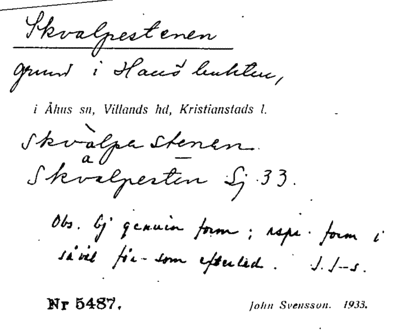 Skvalpestenen
grund i Hanöbukten,
i Åhus sn, Villands hd, Kristianstads l.
skvàlpestenen.
a
Skvalpesten Sj. 33.
Obs. Ej genuin form; rspr. form i
såväl för- som efterled. J. S-s.
Nr 5487. John Svensson. 1933.